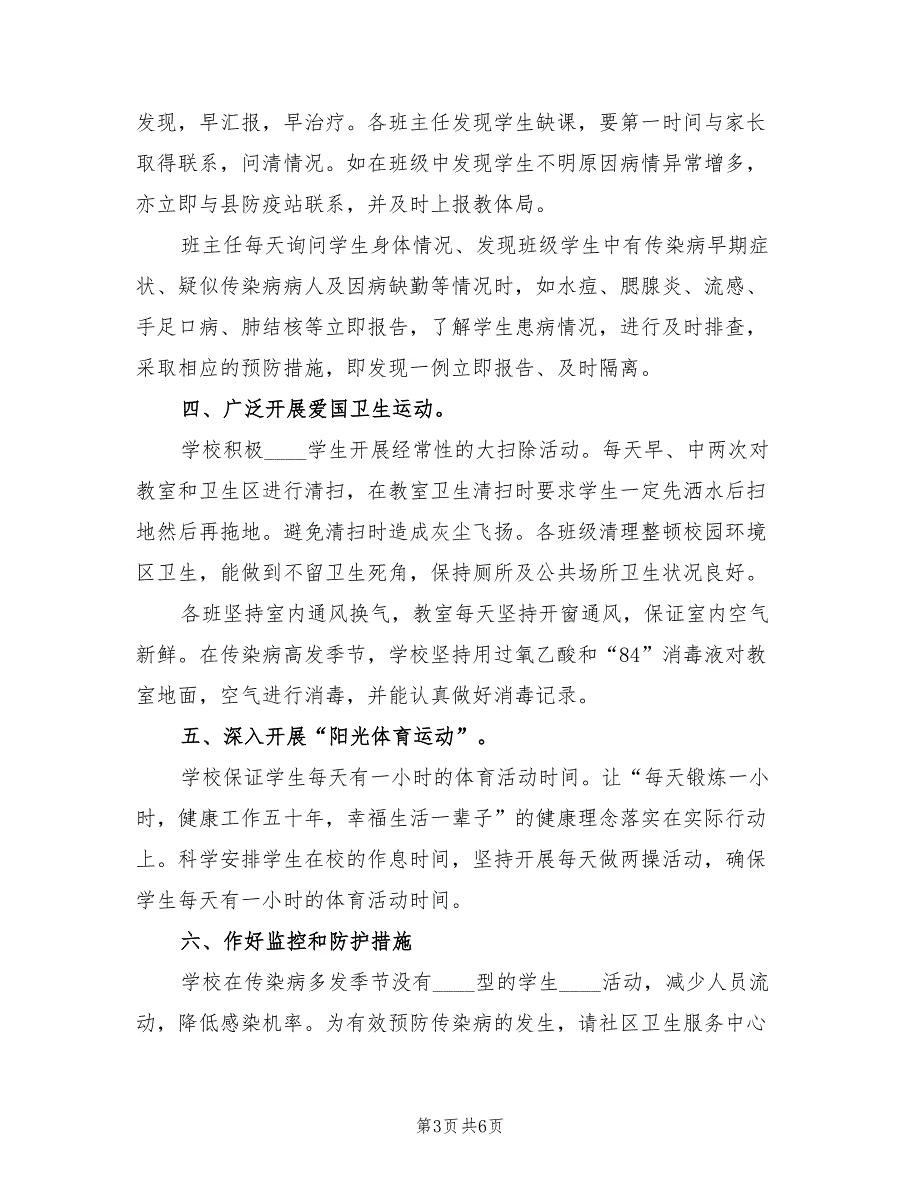 发现，早汇报，早治疗。各班主任发现学生缺课，要第一时间与家长
取得联系，问清情况。如在班级中发现学生不明原因病情异常增多，
亦立即与县防疫站联系，并及时上报教体局。
班主任每天询问学生身体情况、发现班级学生中有传染病早期症
状、疑似传染病病人及因病缺勤等情况时，如水痘、腮腺炎、流感、
手足口病、肺结核等立即报告，了解学生患病情况，进行及时排查，
采取相应的预防措施，即发现一例立即报告、及时隔离。
四、广泛开展爱国卫生运动。
学校积极____学生开展经常性的大扫除活动。每天早、中两次对
教室和卫生区进行清扫，在教室卫生清扫时要求学生一定先洒水后扫
地然后再拖地。避免清扫时造成灰尘飞扬。各班级清理整顿校园环境
区卫生，能做到不留卫生死角，保持厕所及公共场所卫生状况良好。
各班坚持室内通风换气，教室每天坚持开窗通风，保证室内空气
新鲜。在传染病高发季节，学校坚持用过氧乙酸和“84”消毒液对教
室地面，空气进行消毒，并能认真做好消毒记录。
五、深入开展“阳光体育运动”。
学校保证学生每天有一小时的体育活动时间。让“每天锻炼一小
时，健康工作五十年，幸福生活一辈子”的健康理念落实在实际行动
上。科学安排学生在校的作息时间，坚持开展每天做两操活动，确保
学生每天有一小时的体育活动时间。
六、作好监控和防护措施
学校在传染病多发季节没有____型的学生____活动，减少人员流
动，降低感染机率。为有效预防传染病的发生，请社区卫生服务中心
第3页 共6页